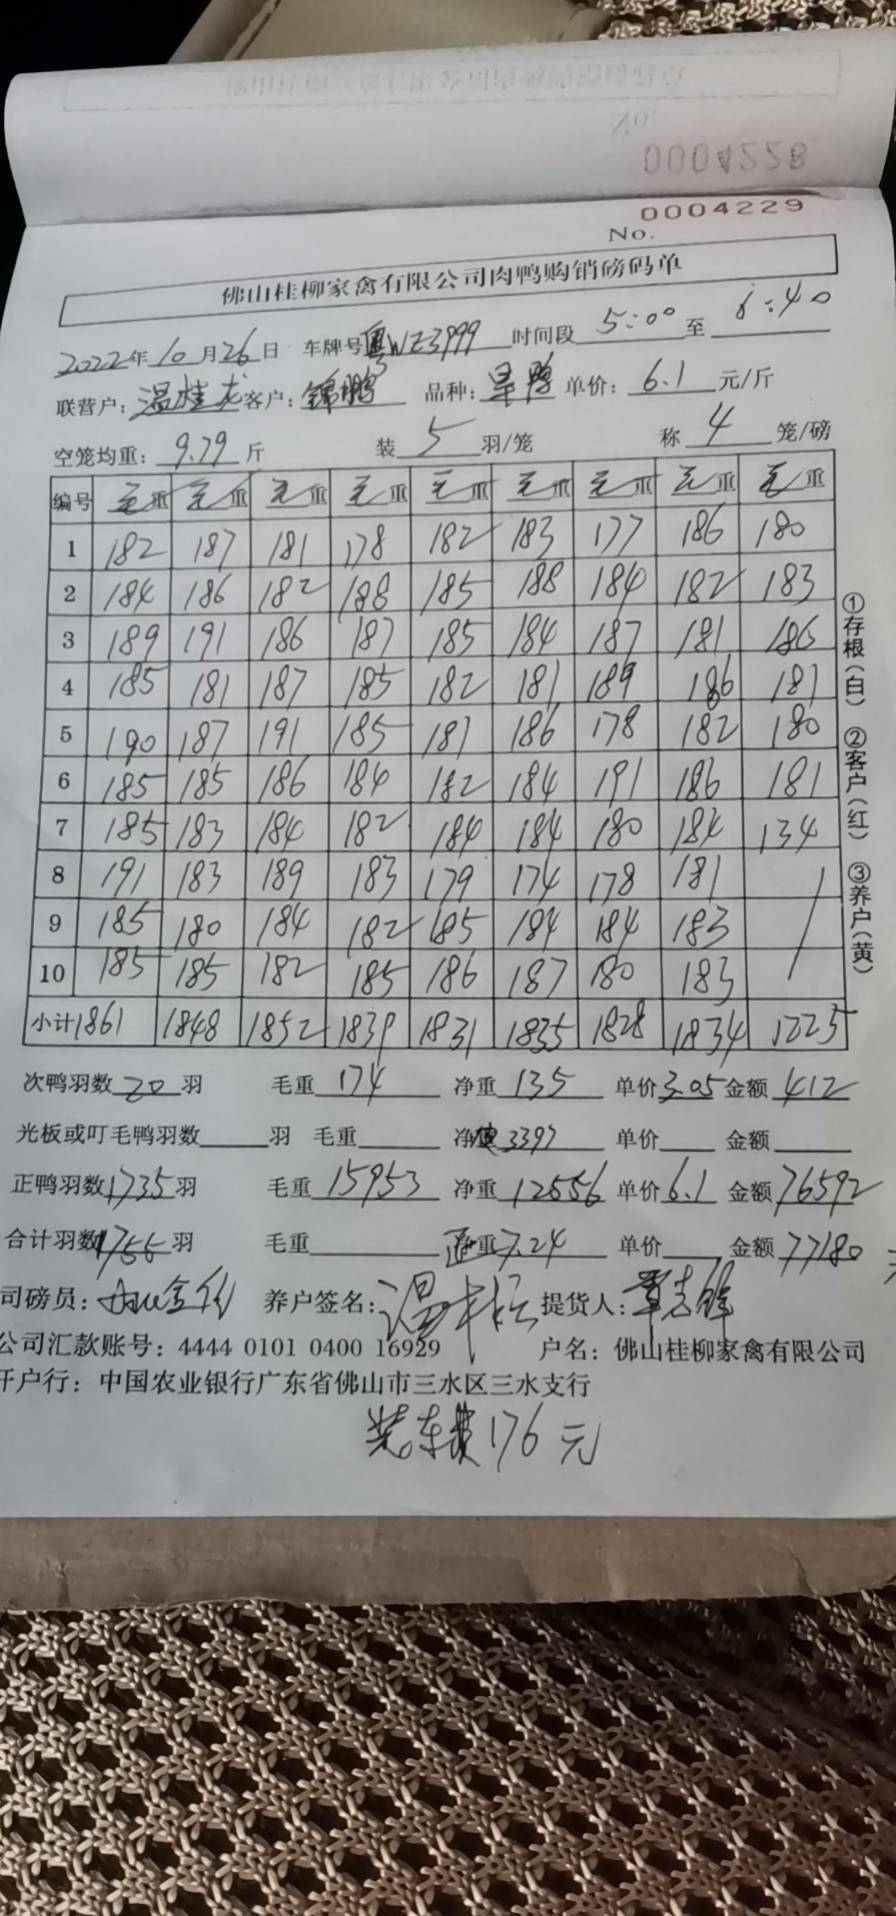 0004228
0004229
No.
佛山桂柳家禽有限公司肉鸭购销磅码单
2022年10月26日 车牌号粤WZ3999 时间段 5:00 至 6:40
联营户：温桂龙 客户：锦鹏 品种： 单价：6.1元/斤
空笼均重：9.79斤 装5羽/笼 称4笼/磅
编号 毛重 毛重 毛重 毛重 毛重 毛重 毛重 毛重 毛重
1 182 187 181 178 182 183 177 186 180
2 184 186 182 188 185 188 184 182 183
3 189 191 186 187 185 184 187 181 186
4 185 181 187 185 182 181 189 186 181
5 190 187 191 185 181 186 178 182 180
6 185 185 186 184 182 184 191 186 181
7 185 183 184 182 184 184 180 184 134
8 191 183 189 183 179 174 178 181
9 185 180 184 182 185 184 184 183
10 185 185 182 185 186 187 180 183
小计 1861 1848 1852 1839 1831 1835 1828 1834 1225
①存根（白） ②客户（红） ③养户（黄）
次鸭羽数20羽 毛重174 净重135 单价3.05 金额412
光板或叮毛鸭羽数 羽 毛重 净 3397 单价 金额
正鸭羽数1735羽 毛重15953 净重12556 单价6.1 金额76592
合计羽数1755羽 毛重 重7.24 单价 金额77180
司磅员： 养户签名： 提货人：
公司汇款账号：4444 0101 0400 16929 户名：佛山桂柳家禽有限公司
开户行：中国农业银行广东省佛山市三水区三水支行
装车费176元